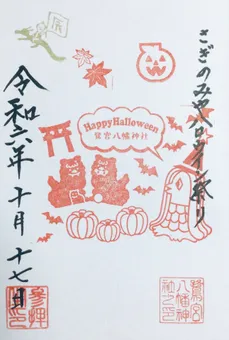 辰
さぎのみやハロウィン祭り
HappyHalloween
鷺宮八幡神社
令和六年十月十七日
参拝
鷺宮
八幡神
社之印